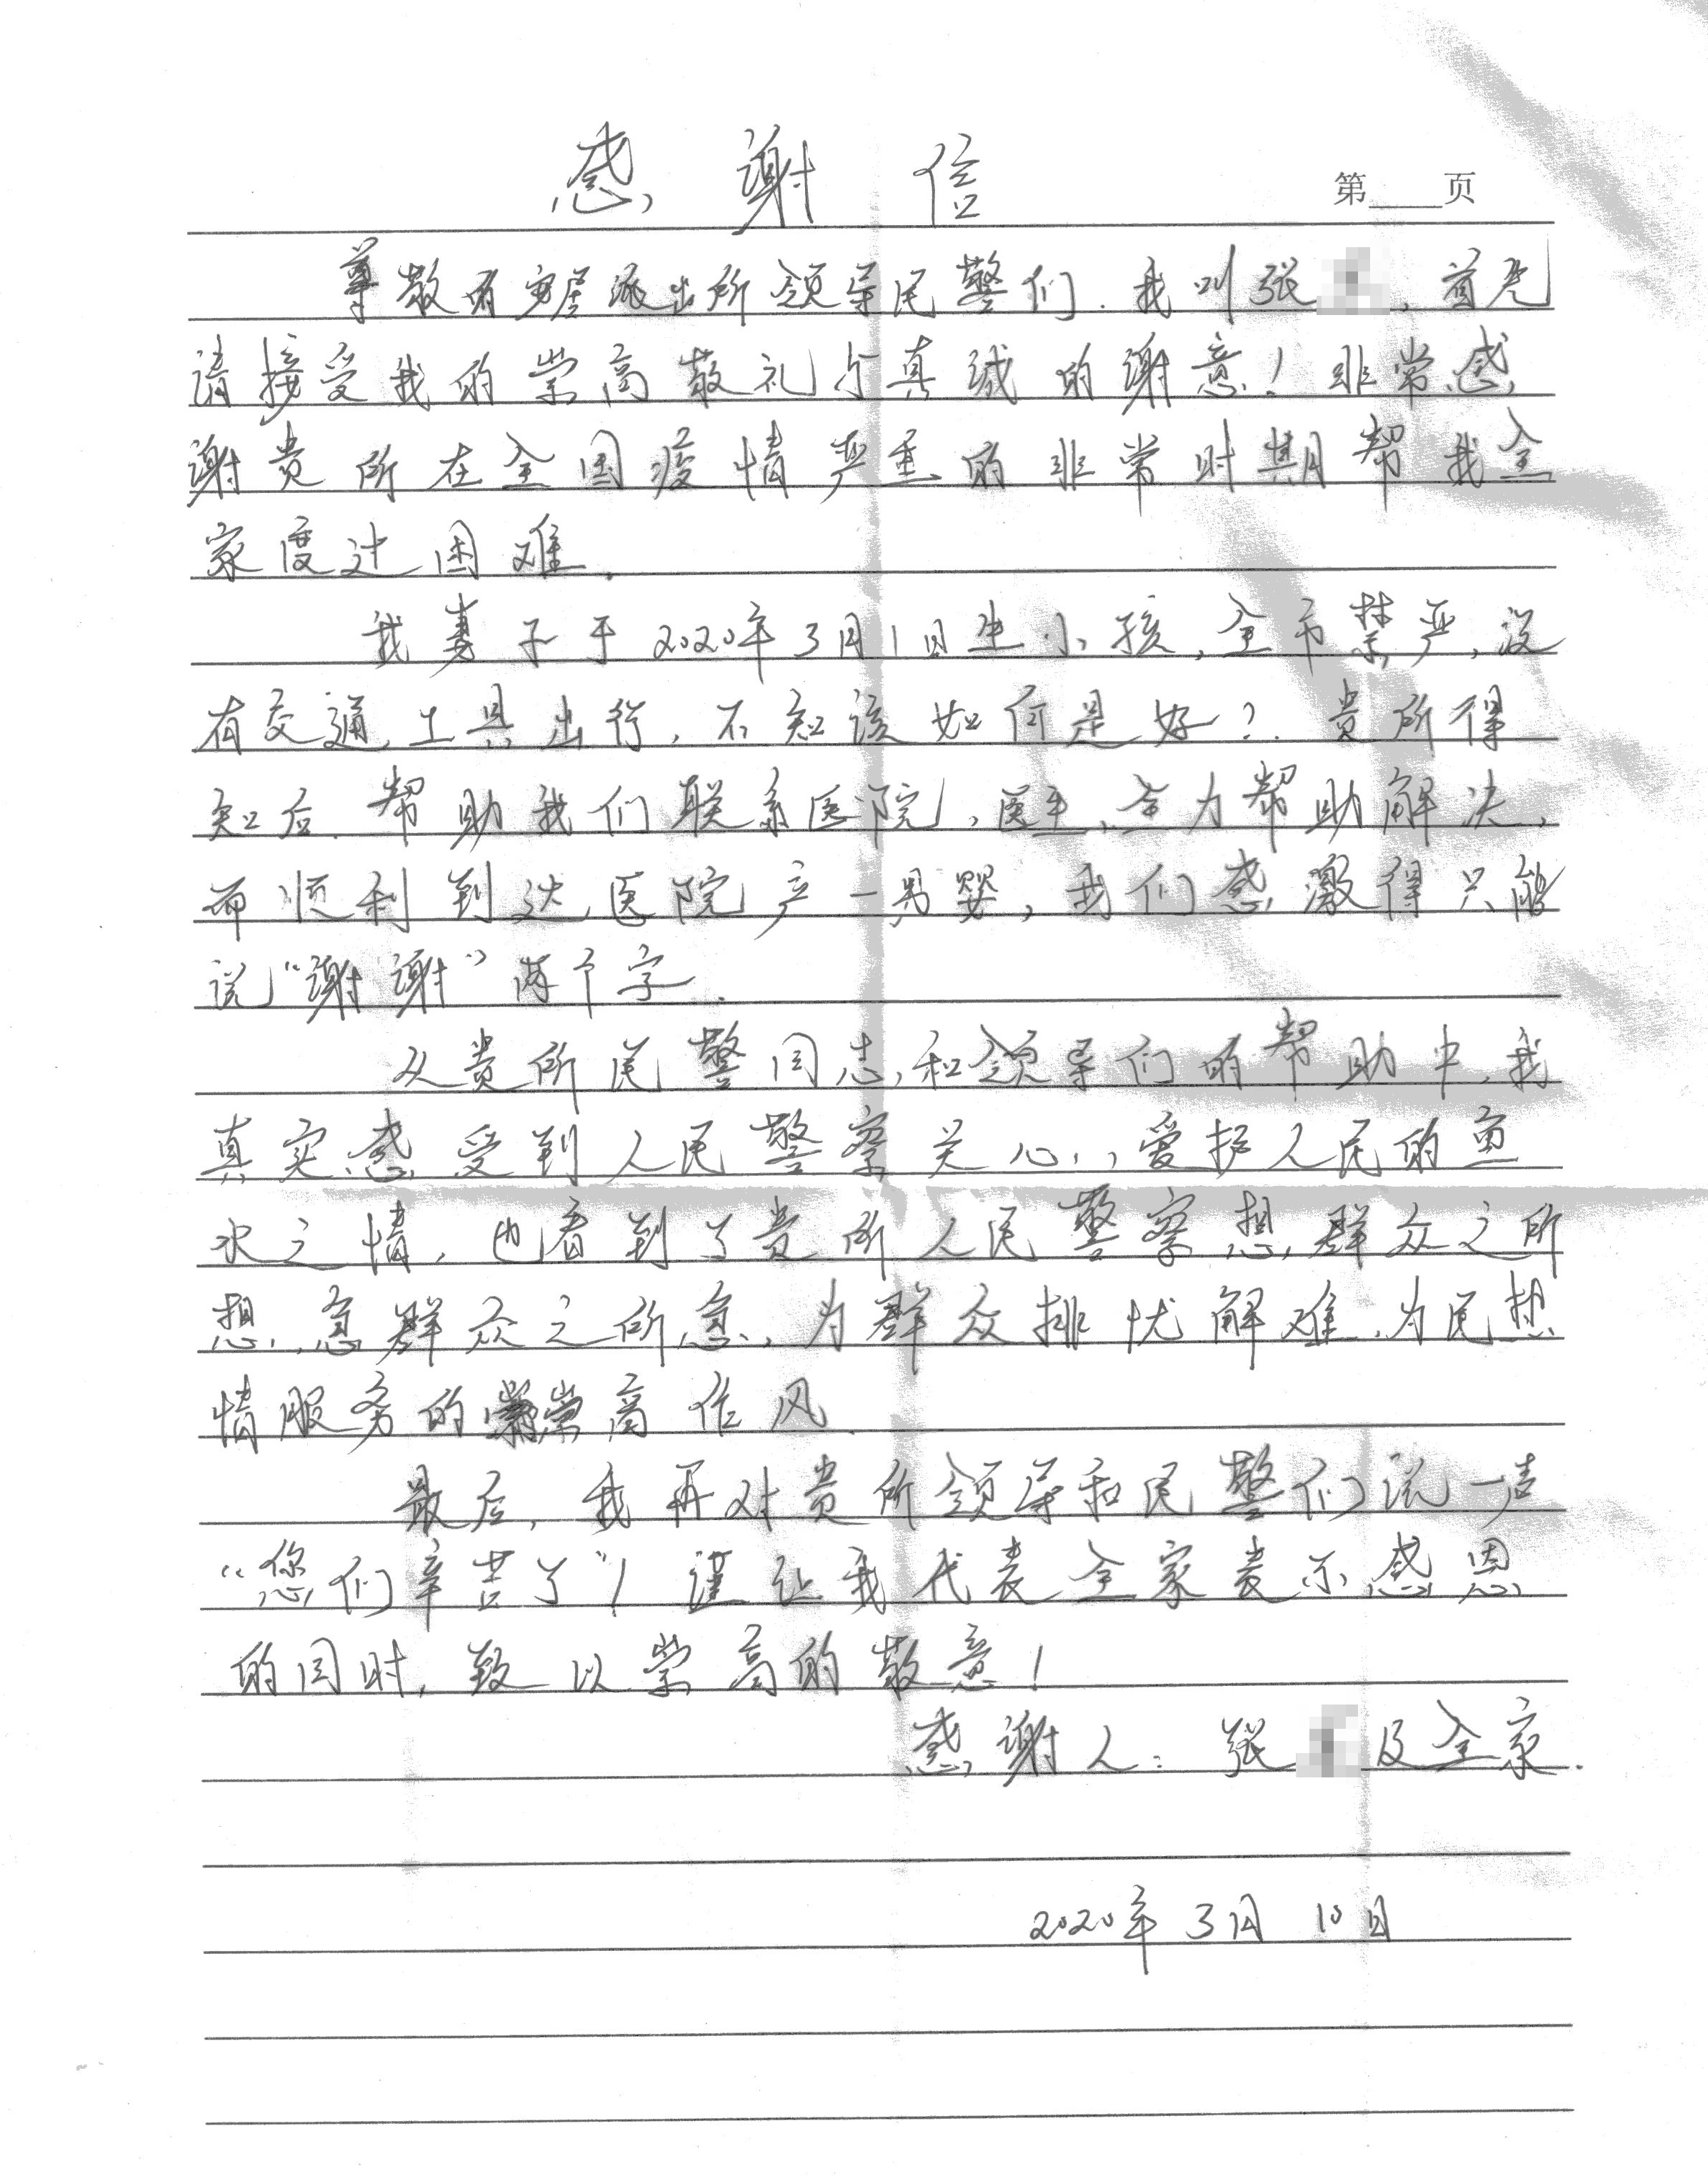 感谢信
第 页
尊敬有安居派出所领导民警们.我叫张,首先
请接受我的崇高敬礼与真诚的谢意!非常感
谢贵所在全国疫情严重的非常时期帮我全
家度过困难.
我妻子于2020年3月1日生小孩,全市禁严,没
有交通工具出行,不知该如何是好?.贵所得
知后.帮助我们联系医院,医生,全力帮助解决,
而顺利到达医院产一男婴,我们感激得只能
说“谢谢”两个字.
从贵所民警同志和领导们的帮助中,我
真实感受到人民警察关心,爱护人民的鱼
水之情,也看到了贵所人民警察想群众之所
想,急群众之所急,为群众排忧解难,为民热
情服务的崇高作风.
最后,我再对贵所领导和民警们说一声
“您们辛苦了”!谨让我代表全家表示感恩
的同时,致以崇高的敬意!
感谢人:张 及全家.
2020年3月10日